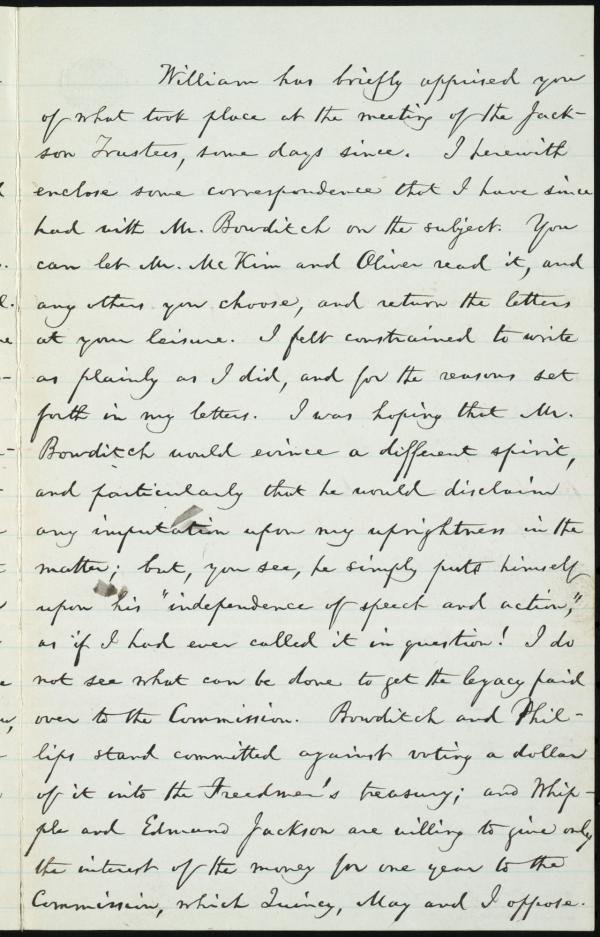 William has briefly apprised you
of what took place at the meeting of the Jack-
son Trustees, some days since. I herewith
enclose some correspondence that I have since
had with Mr. Bowditch on the subject. You
can let Mr. McKim and Oliver read it, and
any others you choose, and return the letters
at your leisure. I felt constrained to write
as plainly as I did, and for the reasons set
forth in my letters. I was hoping that Mr.
Bowditch would evince a different spirit,
and particularly that he would disclaim
any imputation upon my uprightness in the
matter; but, you see, he simply puts himself
upon his "independence of speech and action,"
as if I had ever called it in question! I do
not see what can be done to get the legacy paid
over to the Commission. Bowditch and Phil-
lips stand committed against voting a dollar
of it into the Freedmen's treasury; and Whip-
ple and Edmund Jackson are willing to give only
the interest of the money for one year to the
Commission, which Quincy, May and I oppose.